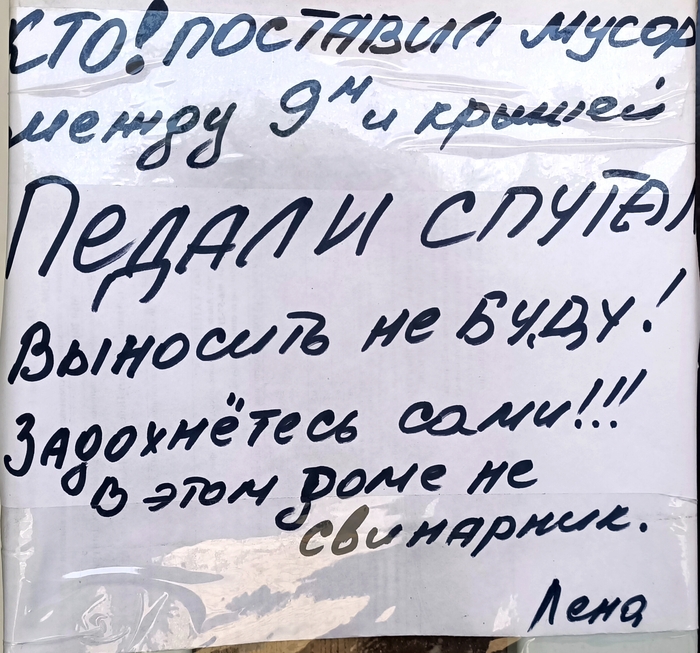 КТО! ПОСТАВИЛ мусор
между 9м и крышей
ПЕДАЛИ СПУТАЛ
Выносить не БУДУ!
Задохнётесь сами!!!
в этом доме не
свинарник.
Лена